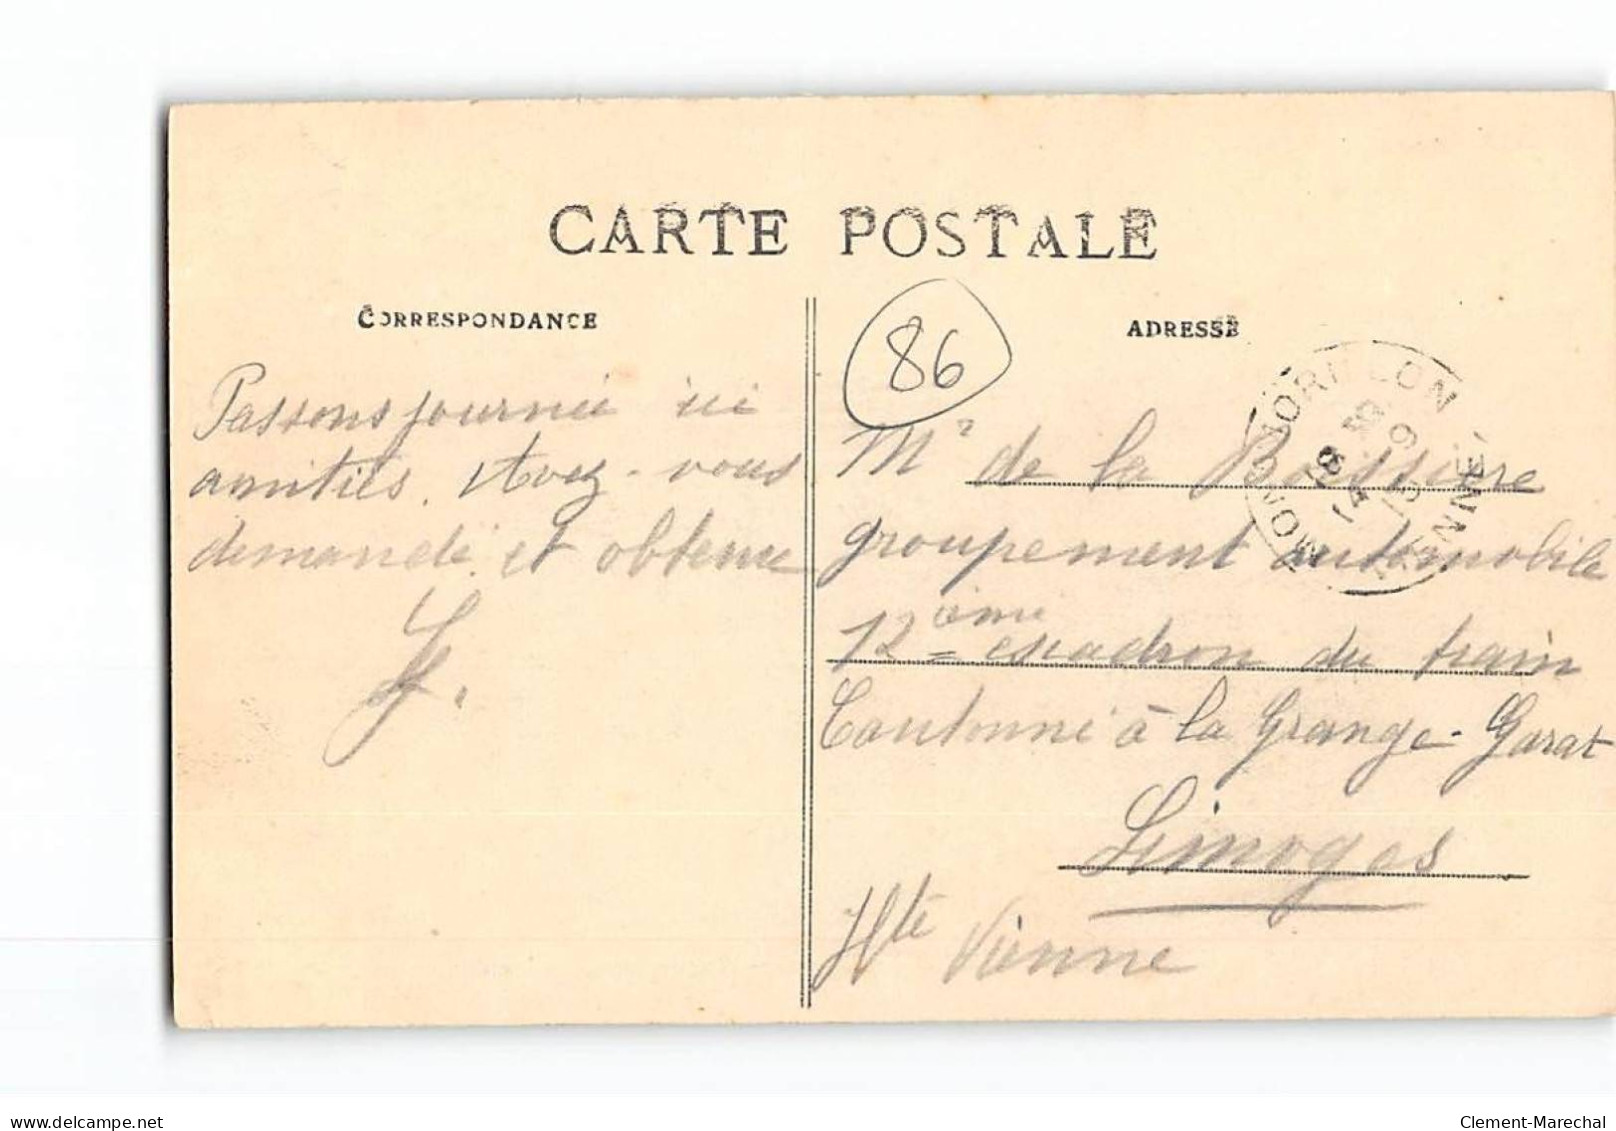 CARTE POSTALE
CORRESPONDANCE
Passons journée ici
amitiés. Avez-vous
demandé et obtenu
86
ADRESSE
MONTMORILLON
18 30
14 9
15
VIENNE
Mr de la Boissière
groupement automobile
12 ième escadron du train
Cantonné à la Grange-Garat
Limoges
Hte Vienne
delcampe.net
Clement-Marechal